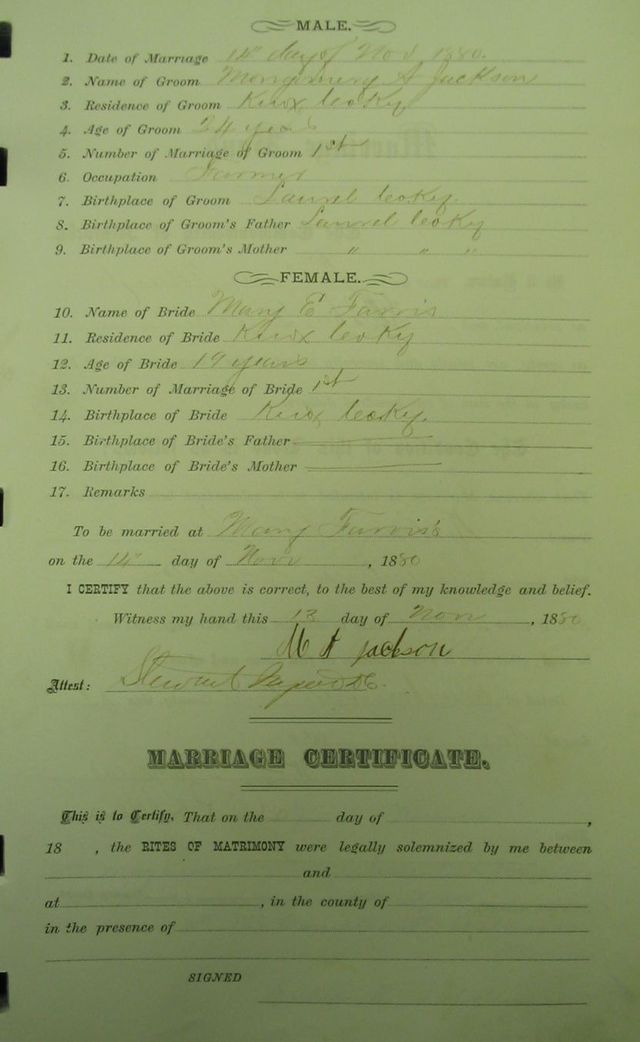 MALE.
1. Date of Marriage 14" day of Nov 1880.
2. Name of Groom Montgomery A Jackson
3. Residence of Groom Knox Co Ky
4. Age of Groom 24 years
5. Number of Marriage of Groom 1st
6. Occupation Farmer
7. Birthplace of Groom Laurel Co Ky.
8. Birthplace of Groom's Father Laurel Co Ky
9. Birthplace of Groom's Mother " " "
FEMALE.
10. Name of Bride Mary E Farris
11. Residence of Bride Knox Co Ky
12. Age of Bride 19 years
13. Number of Marriage of Bride 1st
14. Birthplace of Bride Knox Co Ky.
15. Birthplace of Bride's Father
16. Birthplace of Bride's Mother
17. Remarks
To be married at Mary Farris's
on the 14" day of Nov , 1880
I CERTIFY that the above is correct, to the best of my knowledge and belief.
Witness my hand this 13 day of Nov , 1880
M A Jackson
Attest: Stewart
MARRIAGE CERTIFICATE.
This is to Certify, That on the day of ,
18 , the RITES OF MATRIMONY were legally solemnized by me between
and
at , in the county of
in the presence of
SIGNED